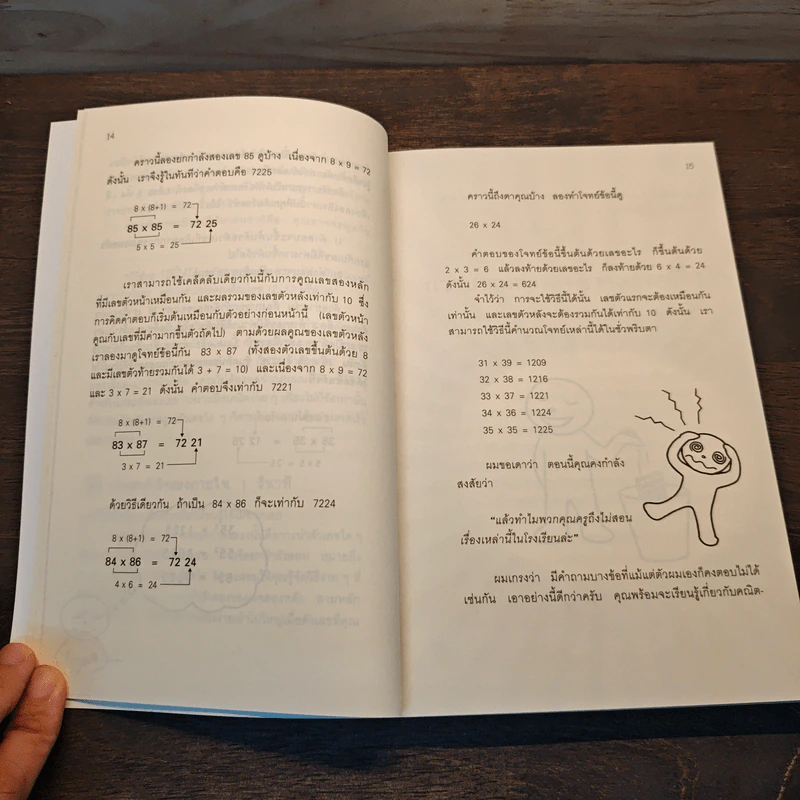 14
คราวนี้ลองยกกำลังสองเลข 85 ดูบ้าง เนื่องจาก 8 x 9 = 72
ดังนั้น เราจึงรู้ในทันทีว่าคำตอบคือ 7225
8 x (8+1) = 72
85 x 85 = 72 25
5 x 5 = 25
เราสามารถใช้เคล็ดลับเดียวกันนี้กับการคูณเลขสองหลัก
ที่มีเลขตัวหน้าเหมือนกัน และผลรวมของเลขตัวหลังเท่ากับ 10 ซึ่ง
การคิดคำตอบก็เริ่มต้นเหมือนกับตัวอย่างก่อนหน้านี้ (เลขตัวหน้า
คูณกับเลขที่มีค่ามากขึ้นตัวถัดไป) ตามด้วยผลคูณของเลขตัวหลัง
เราลองมาดูโจทย์ข้อนี้กัน 83 x 87 (ทั้งสองตัวเลขขึ้นต้นด้วย 8
และมีเลขตัวท้ายรวมกันได้ 3 + 7 = 10) และเนื่องจาก 8 x 9 = 72
และ 3 x 7 = 21 ดังนั้น คำตอบจึงเท่ากับ 7221
8 x (8+1) = 72
83 x 87 = 72 21
3 x 7 = 21
ด้วยวิธีเดียวกัน ถ้าเป็น 84 x 86 ก็จะเท่ากับ 7224
8 x (8+1) = 72
84 x 86 = 72 24
4 x 6 = 24
15
คราวนี้ถึงตาคุณบ้าง ลองทำโจทย์ข้อนี้ดู
26 x 24
คำตอบของโจทย์ข้อนี้ขึ้นต้นด้วยเลขอะไร ก็ขึ้นต้นด้วย
2 x 3 = 6 แล้วลงท้ายด้วยเลขอะไร ก็ลงท้ายด้วย 6 x 4 = 24
ดังนั้น 26 x 24 = 624
จำไว้ว่า การจะใช้วิธีนี้ได้นั้น เลขตัวแรกจะต้องเหมือนกัน
เท่านั้น และเลขตัวหลังจะต้องรวมกันได้เท่ากับ 10 ดังนั้น เรา
สามารถใช้วิธีนี้คำนวณโจทย์เหล่านี้ได้ในชั่วพริบตา
31 x 39 = 1209
32 x 38 = 1216
33 x 37 = 1221
34 x 36 = 1224
35 x 35 = 1225
ผมขอเดาว่า ตอนนี้คุณคงกำลัง
สงสัยว่า
“แล้วทำไมพวกคุณครูถึงไม่สอน
เรื่องเหล่านี้ในโรงเรียนล่ะ”
ผมเกรงว่า มีคำถามบางข้อที่แม้แต่ตัวผมเองก็คงตอบไม่ได้
เช่นกัน เอาอย่างนี้ดีกว่าครับ คุณพร้อมจะเรียนรู้เกี่ยวกับคณิต-